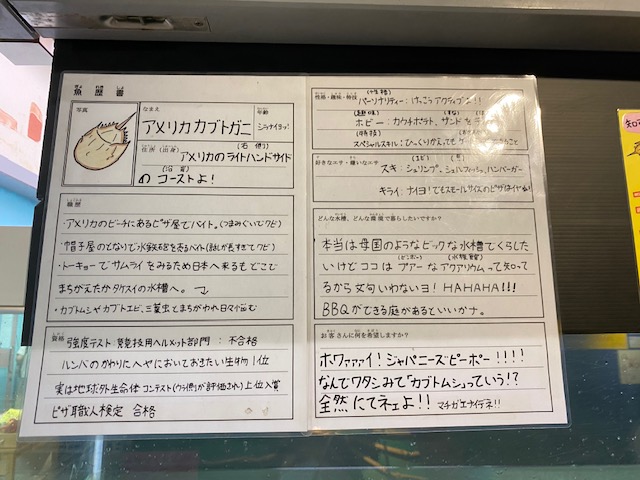 魚歴書
写真
なまえ
アメリカカブトガニ
年齢
シラナイヨッ!
住所(出身)
(右側)
アメリカのライトハンドサイド
(沿岸)
のコーストよ!
職歴
・アメリカのビーチにあるピザ屋でバイト。(つまみぐいでクビ)
・帽子屋のとなりで水鉄砲を売るバイト(話しが長すぎてクビ)
・トーキョーでサムライをみるため日本へ来るもどこで
まちがえたかタケスイの水槽へ。
・カブトムシやカブトエビ、三葉虫とまちがわれ日々悩む
資格
強度テスト:競技用ヘルメット部門:不合格
ルンバのかわりにへやにおいておきたい生物1位
実は地球外生命体コンテスト(ウラ側が評価され)上位入賞
ピザ職人検定 合格
性格・趣味・特技
(性格)
パーソナリティー:けっこうアクティブよ!!
(趣味)
ホビー:カウチポテト、サンドを
(特技)
スペシャルスキル:ひっくりかえっても
好きなエサ・嫌いなエサ
(エビ)(貝)
スキ:シュリンプ、シェルフィッシュ、ハンバーガー
キライ:ナイヨ!でもスモールサイズのピザはイヤね!
どんな水槽、どんな環境で暮らしたいですか?
本当は母国のようなビックな水槽でくらした
(ビンボー)(水族館)
いけどココはプアーなアクアリウムって知って
るから文句いわないヨ!HAHAHA!!!
BBQができる庭があるといいかナ。
お客さんに何を希望しますか?
ホワァァァイ!ジャパニーズピーポー!!!!
なんでワタシみて「カブトムシ」っていう!?
全然にてネェよ!!マチガエナイデネ!!